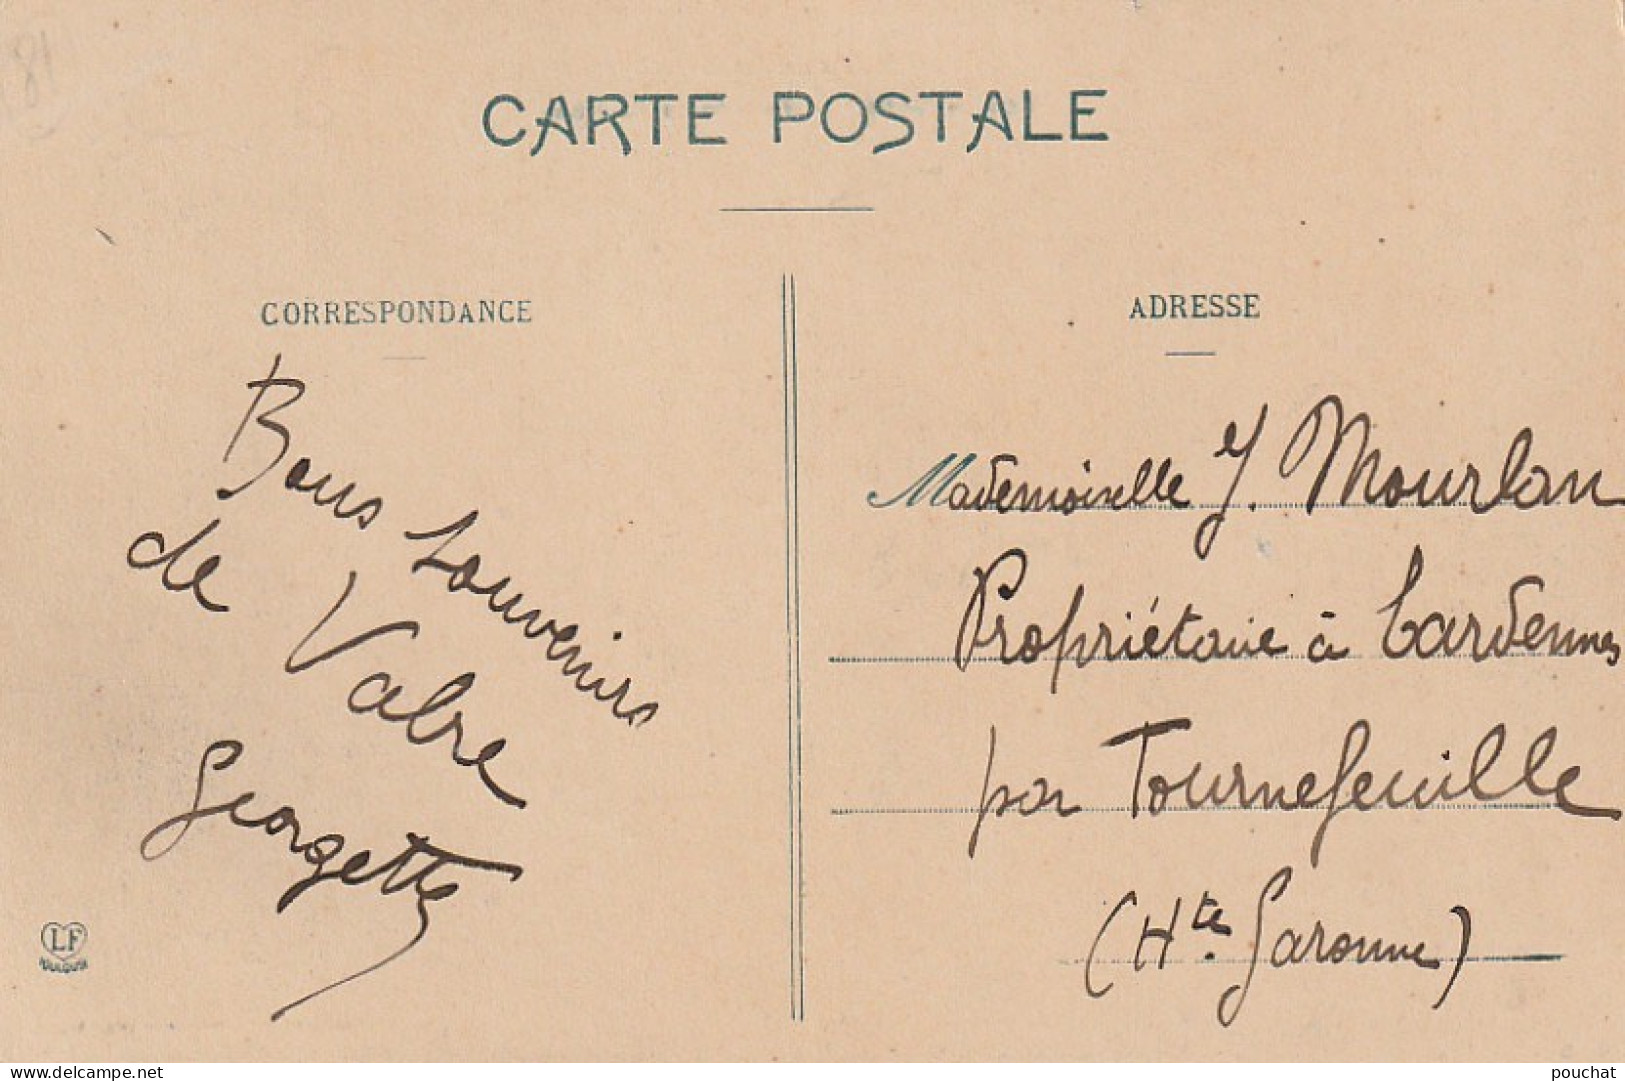 81
CARTE POSTALE
CORRESPONDANCE
Bons souvenirs
de Vabre
Georgette
LF
TOULOUSE
ADRESSE
Mademoiselle Y. Mourlan
Propriétaire à Cardennes
par Tournefeuille
(Hte. Garonne)
delcampe.net
pouchat